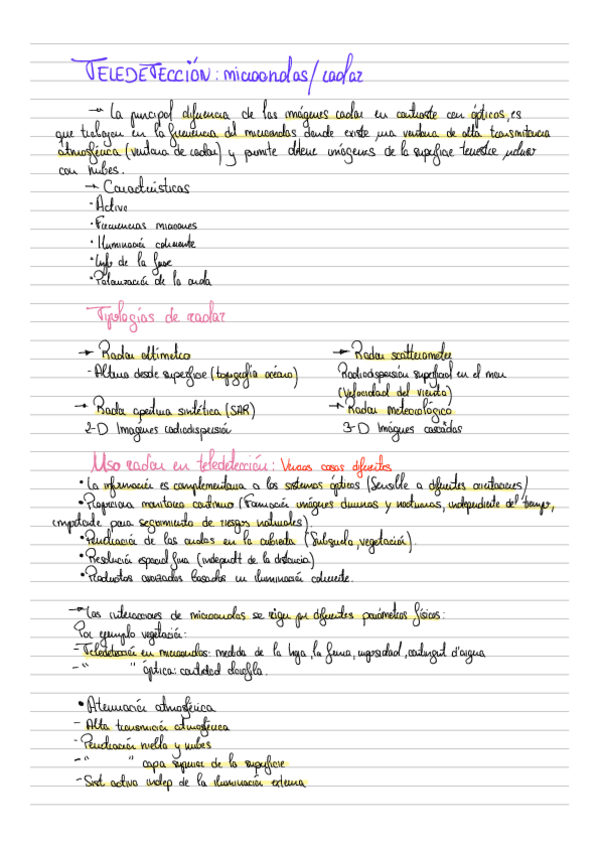 TELEDETECCIÓN: microondas/radar
→ La principal diferencia de las imágenes radar en contraste con ópticas, es
que trabajan en la frecuencia del microondas donde existe una ventana de alta transmitancia
atmosférica (ventana de radar) y permite obtener imágenes de la superficie terrestre incluso
con nubes.
→ Características
· Activo
· Frecuencias microondas
· Iluminación coherente
· Info de la fase
· Polarización de la onda
Tipologías de radar
→ Radar altimetro
- Altura desde superficie (topografía océano)
→ Radar scatterometer
Radiodispersión superficial en el mar
(Velocidad del viento)
→ Radar apertura sintética (SAR)
2-D Imágenes radiodispersión
→ Radar meteorológico
3-D Imágenes cascadas
Uso radar en teledetección: Vemos cosas diferentes
• La información es complementaria a los sistemas ópticos (Sensible a diferentes orientaciones)
• Proporciona monitoreo continuo (Formación imágenes diurnas y nocturnas, independiente del tiempo,
importante para seguimiento de riesgos naturales).
• Penetración de las ondas en la cubierta (Subsuelo, vegetación).
• Resolución espacial fina (independt de la distancia)
• Productos avanzados basados en iluminación coherente.
→ Las interacciones de microondas se rigen por diferentes parámetros físicos:
Por ejemplo vegetación:
- Teledetección en microondas: medida de la hoja, la forma, rugosidad, contingut d'aigua
- " " óptica: cantidad clorofila.
• Atenuación atmosférica
- Alta transmisión atmosférica
- Penetración niebla y nubes
- " " capa superior de la superficie
- Sist activo indep de la iluminación externa